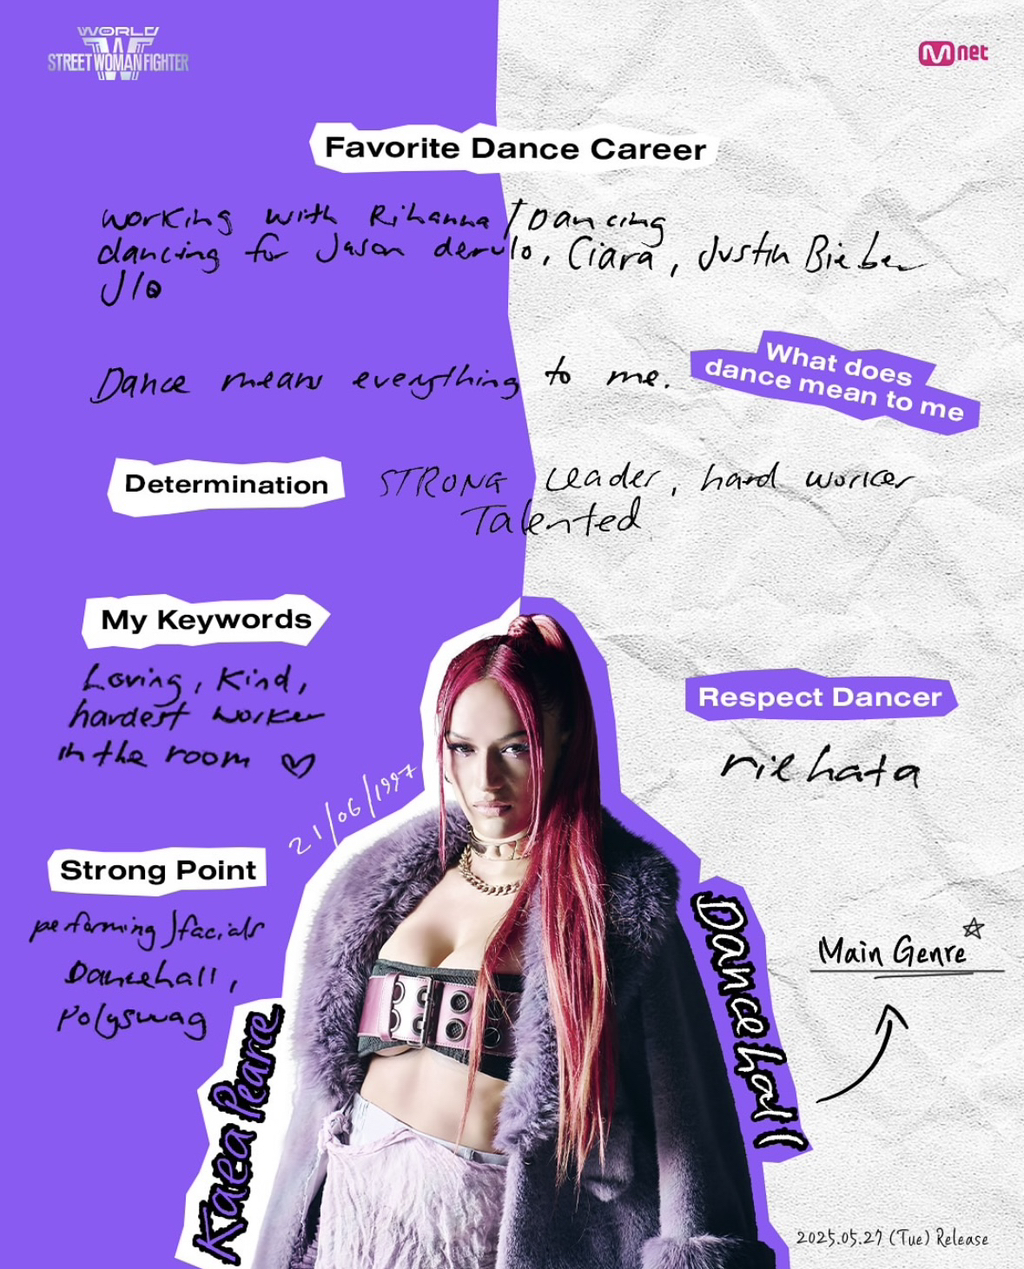 WORLD
W
STREET WOMAN FIGHTER
Mnet
Favorite Dance Career
working with Rihanna / Dancing
dancing for Jason derulo, Ciara, Justin Bieber
Jlo
Dance means everything to me.
What does
dance mean to me
Determination
STRONG Leader, hard worker
Talented
My Keywords
Loving, Kind,
hardest worker
in the room ♡
Respect Dancer
riehata
21/06/1997
Strong Point
performing/facials
Dancehall,
Polyswag
Kaea Pearce
Dancehall
Main Genre ☆
2025.05.27 (Tue) Release